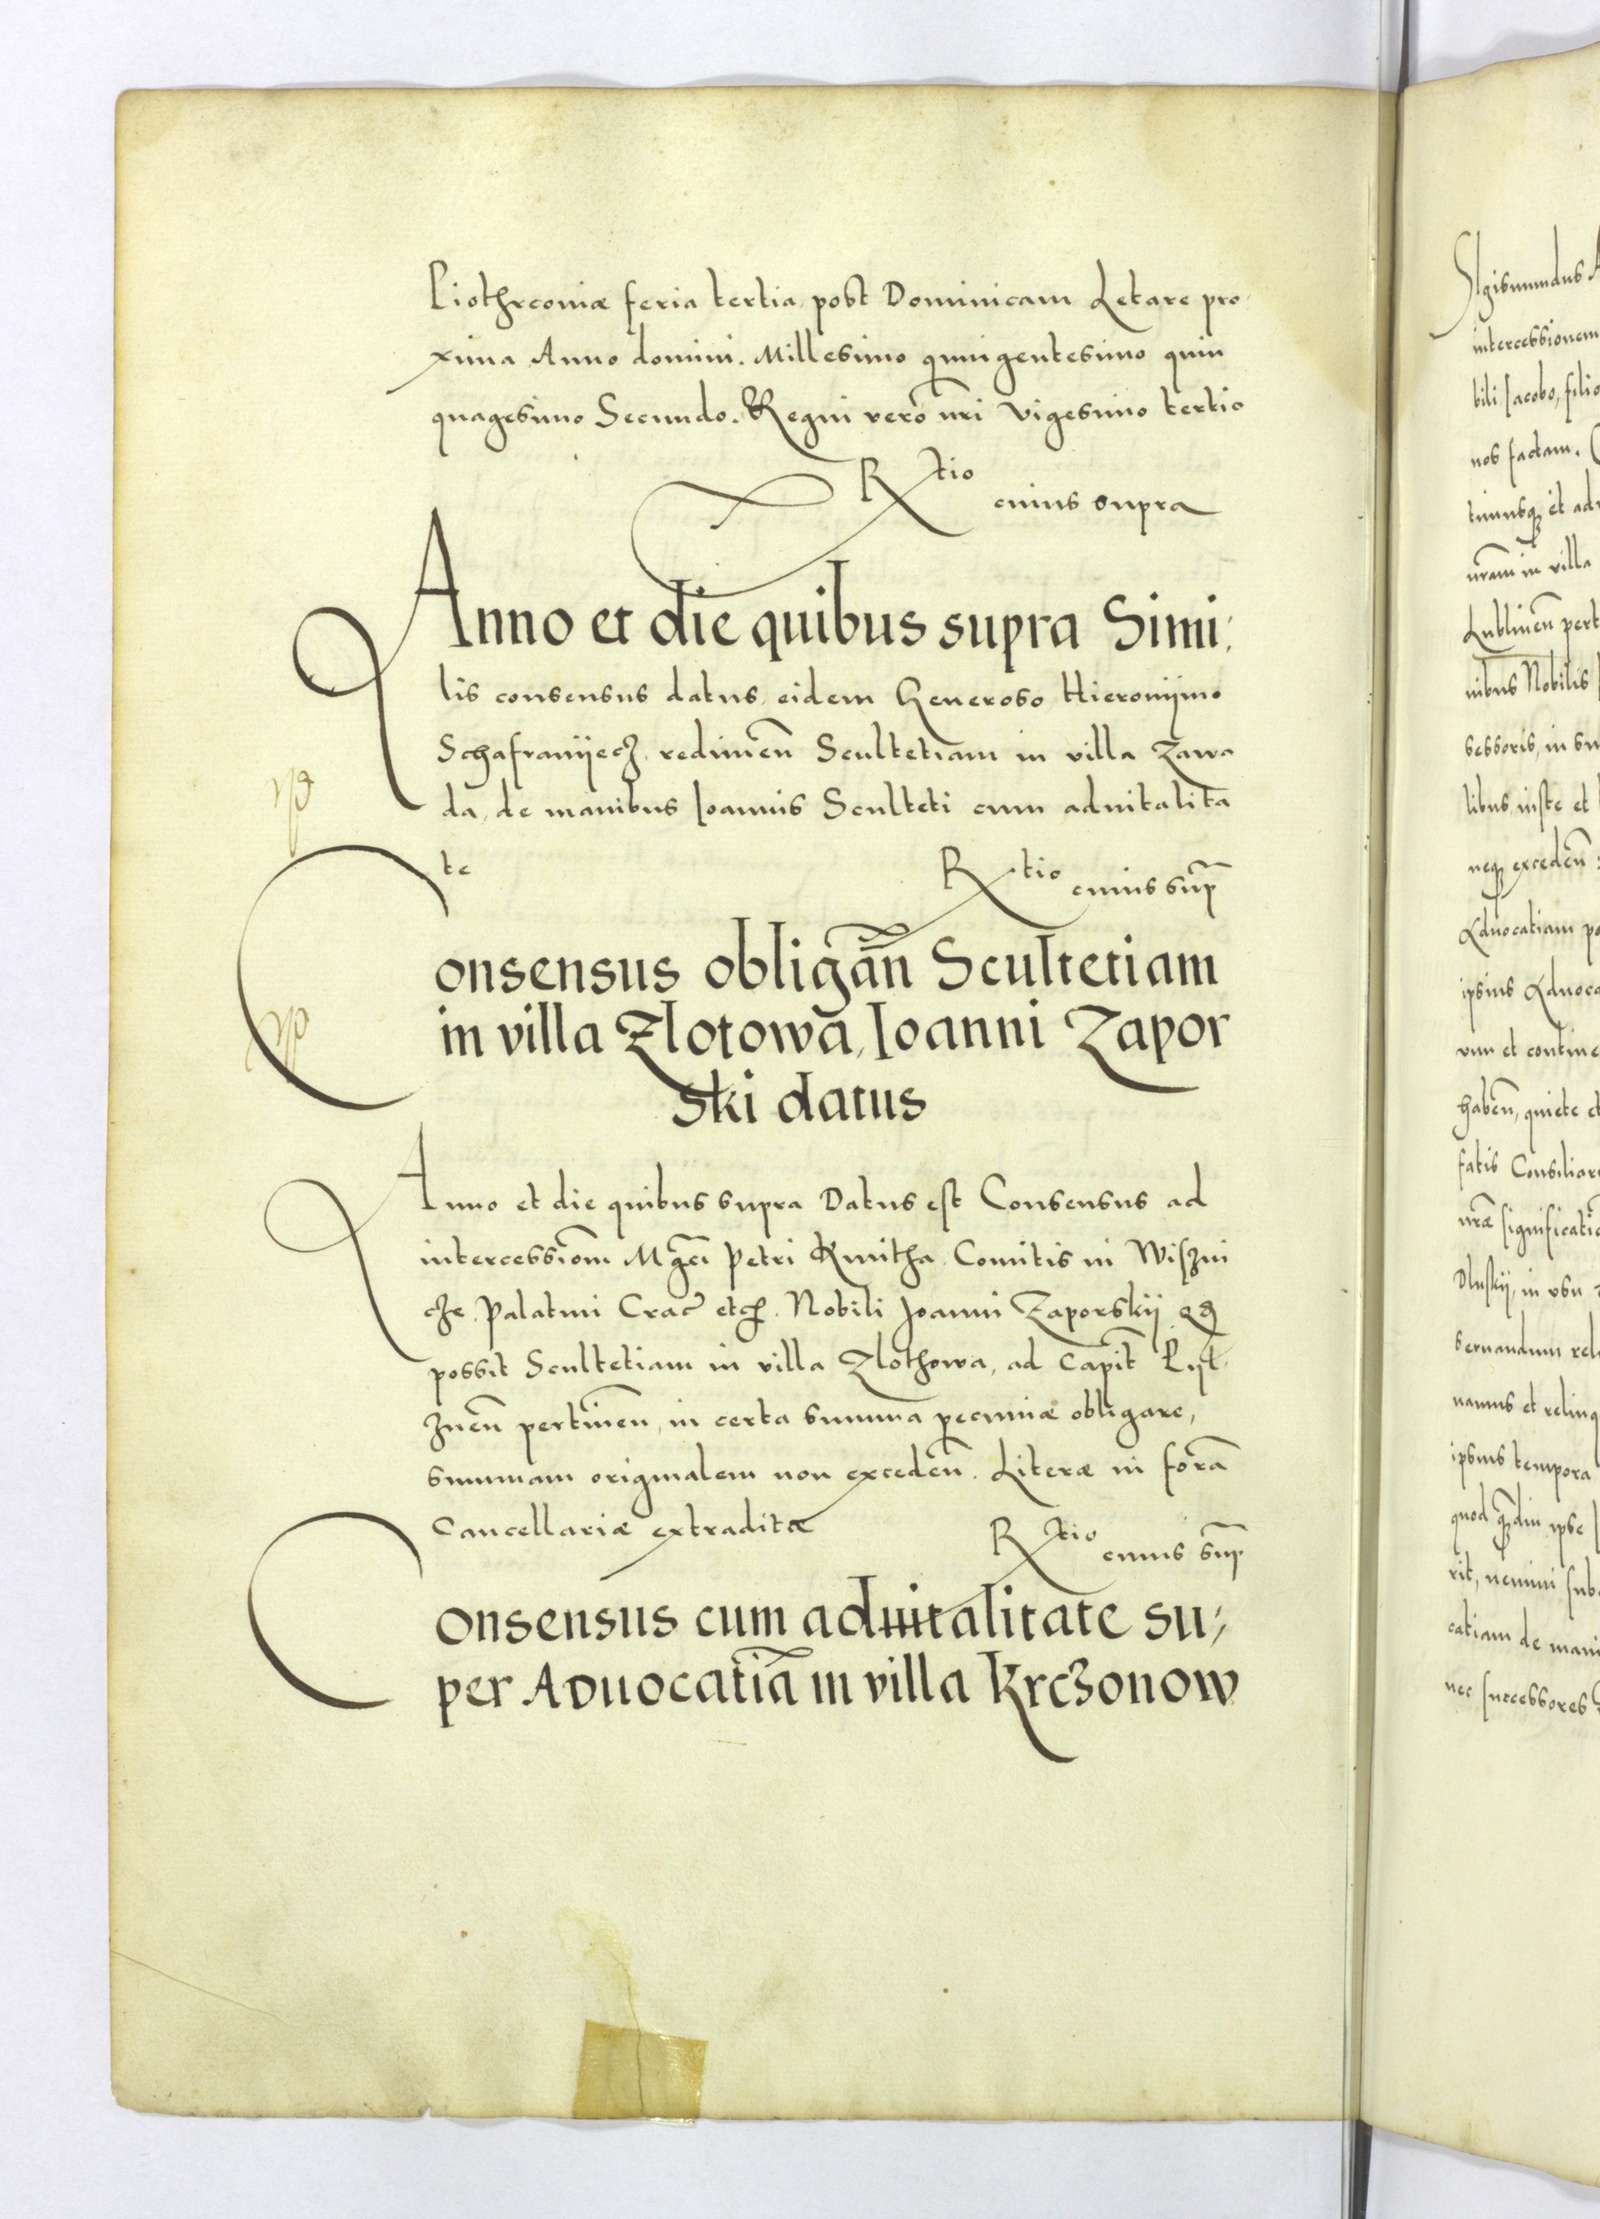 Piothrconiæ feria tertia post Dominicam Letare pro
xima Anno domini. Millesimo quingentesimo quin
quagesimo Secundo. Regni vero nr̃i Vigesimo tertio
R̃tio
cuius supra
Anno et die quibus supra Simi:
lis consensus datus eidem Generoso Hieronijmo
Schafranijecz redimeñ Scultetiam in villa Zawa
da, de manibus Ioannis Sculteti cum aduitalita
te
Rtio
cuius sup̃
Consensus obligañ Scultetiam
in villa Zlotowa, Ioanni Zapor
ski datus
Anno et die quibus supra Datus est Consensus ad
intercessiom̃ Mgci Petri Kmitha Comitis in Wiszni
cze Palatini Crac̃ etc. Nobili Joanni Zaporskij qd
possit Scultetiam in villa Zlothowa, ad Capit̃
zneñ pertineñ, in certa summa pecuniæ obligare,
summam originalem non excedeñ. Literæ in forã
Cancellariæ extraditæ
Rtio
cuius sup̃
Consensus cum aduitalitate su;
per Aduocatiã in villa Krczonow
Sigismundus
intercessionem
bili Iacobo, filio
nos factam.
et
nrãm in villa
Lublineñ pert
nibus Nobilis
sessoris, in su
libus iuste et
neq excedeñ
Aduocatiam po
ipsius Aduoca
et contine
habeñ, quiete et
fatis Consiliar
nrãe significatio
Dluskij, in usu
seruandum rel
namus et relinq
ipsius tempora
quod q̃mdiu ipse
rit, nemini sub
catiam de mani
nec successores